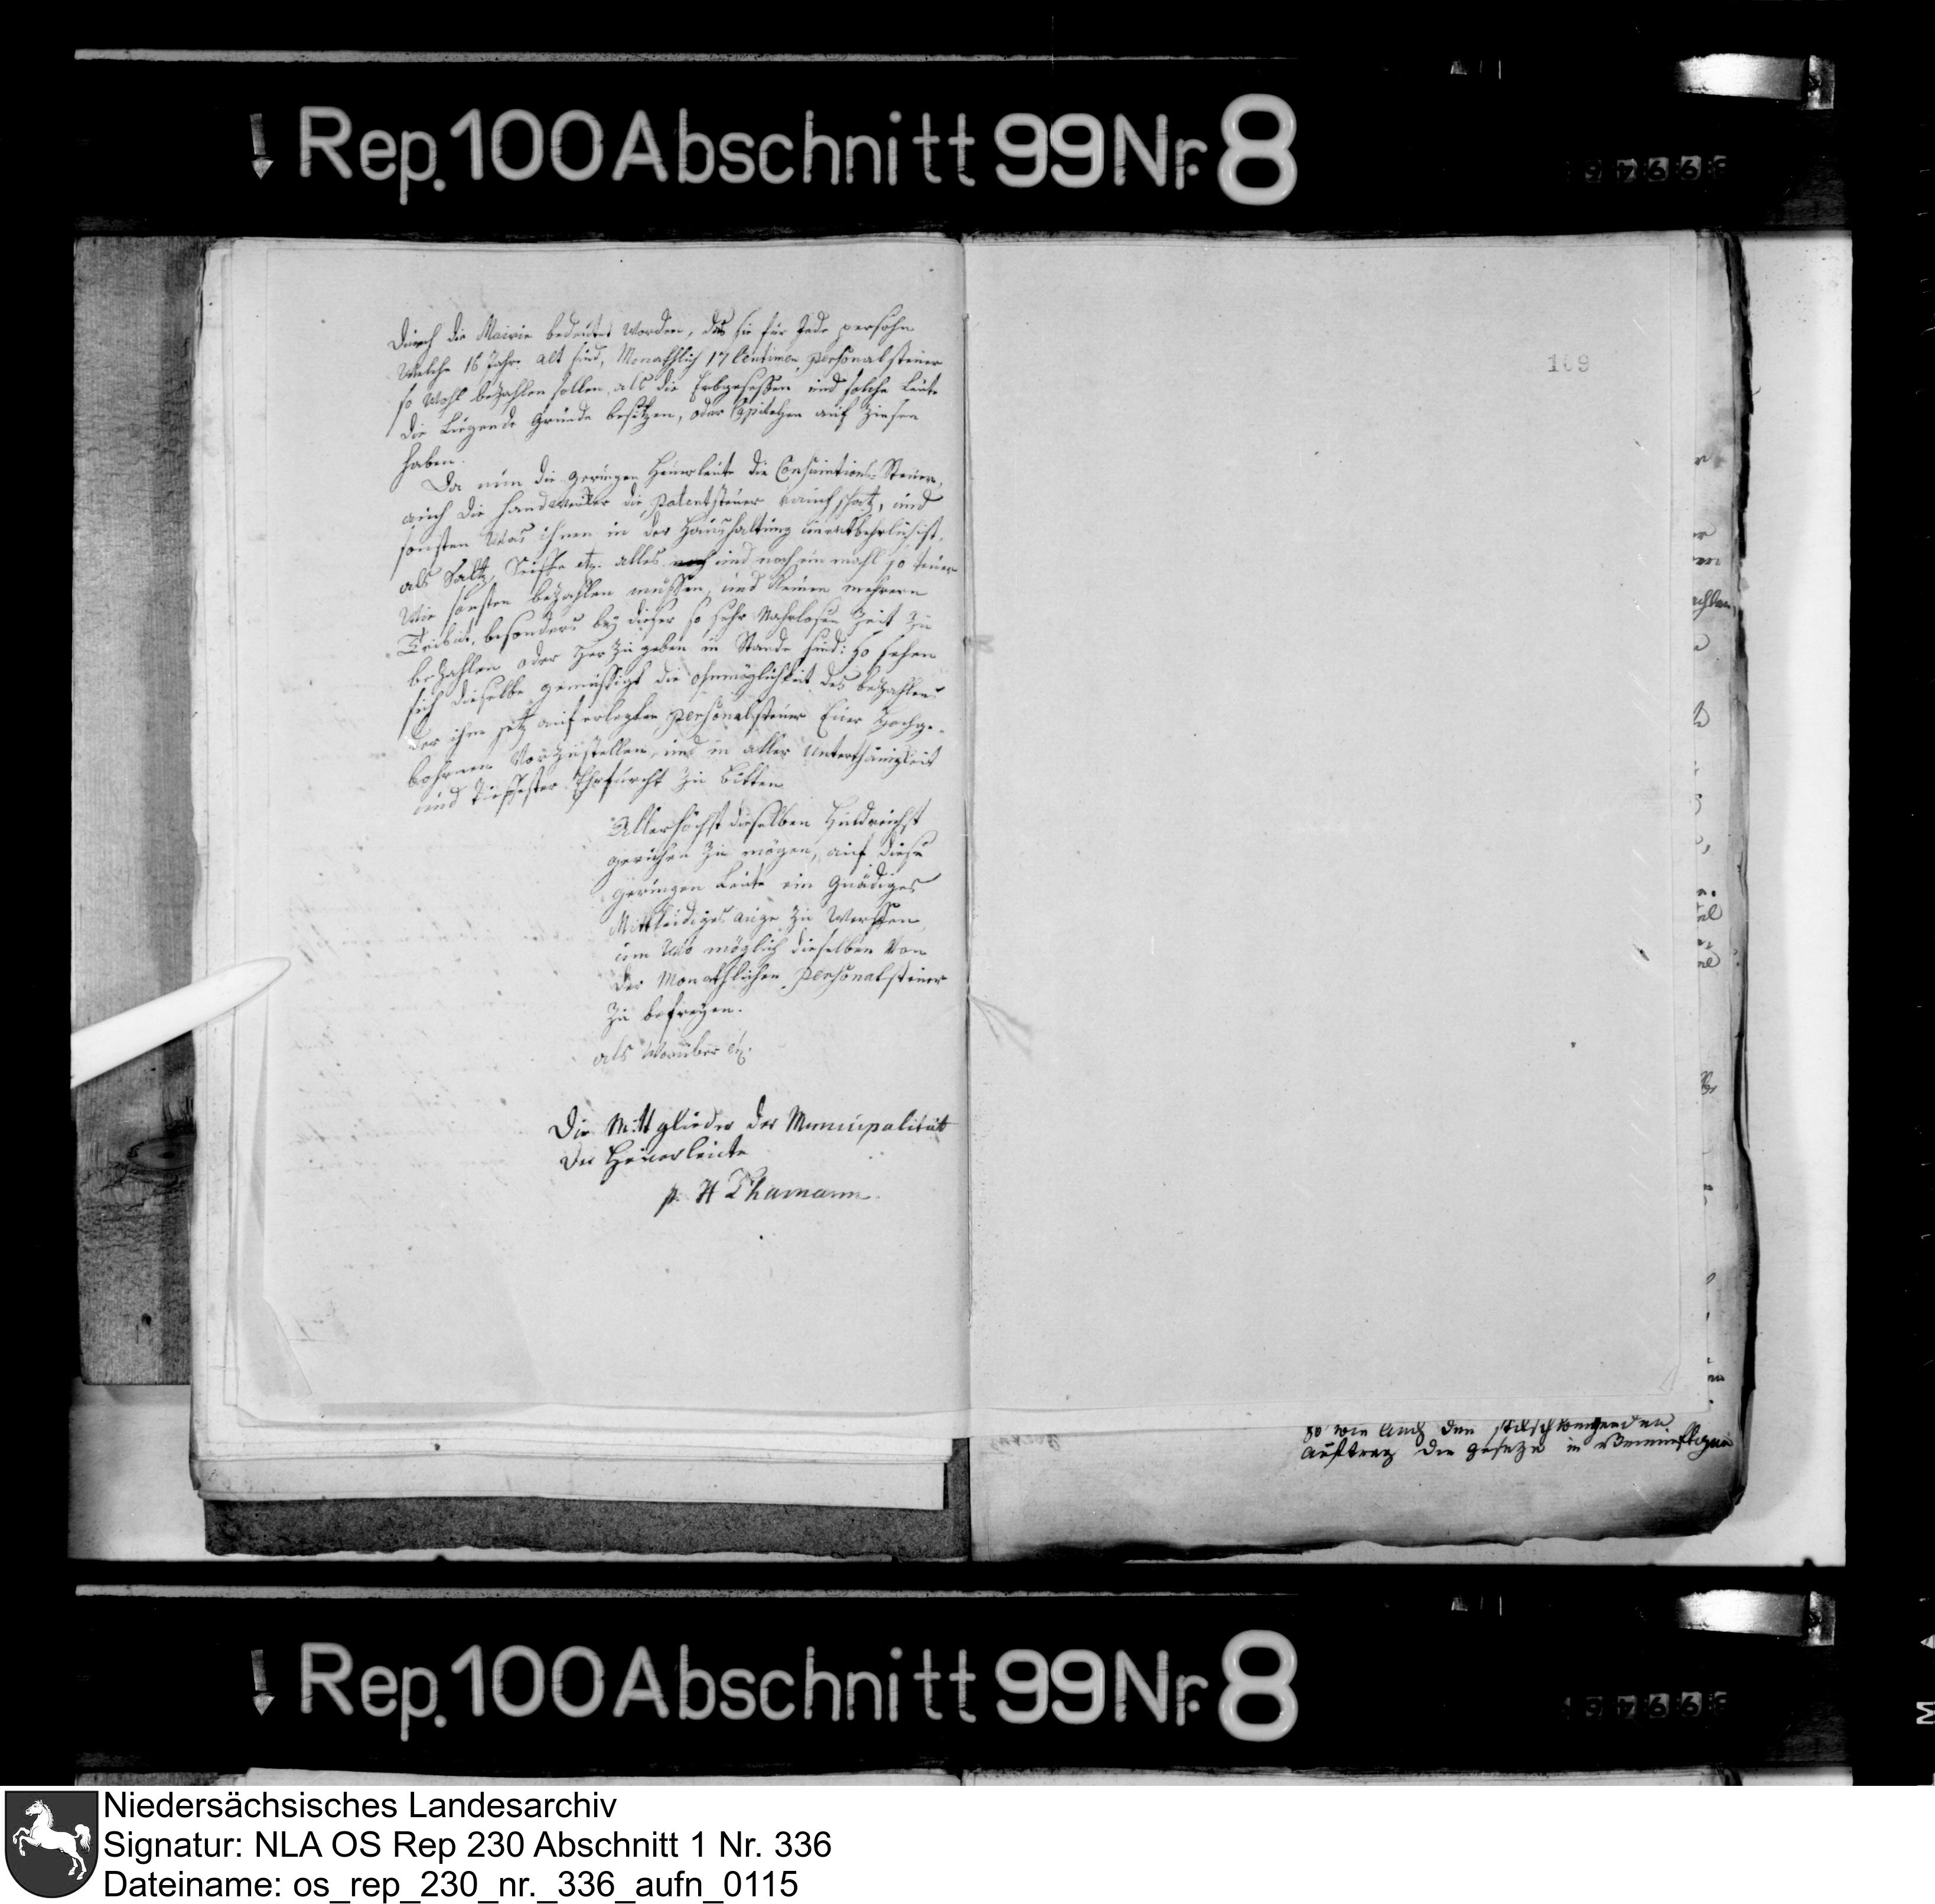 Rep. 100 Abschnitt 99 Nr. 8
durch die Mairie bedeutet worden, daß sie für Jede persohn
Welche 16 Jahr alt sind, Monathlich 17 Centimen personalsteuer
so Wohl bezahlen sollen, als die Erbgesessen und solche Leute
die Liegende Gründe besitzen, oder Capitalien auf Zinsen
haben.
Da nun die geringen Heuerleute die Consumtions-Steuer,
auch die Handwerker die patentsteuer Rauchschatz, und
sonsten Was ihnen in der Haushaltung unentbehrlich ist,
als Saltz, Seiffe etz. alles und noch ein mahl so teuer
Wie sonsten bezahlen müssen, und keinen mehrern
Tribut, besonders bey dieser so sehr Nahrlosen Zeit zu
bezahlen oder her zu geben in Stande sind: so sehen
sich dieselbe gemüssigt die ohnmöglichkeit des bezahlens
der ihm jetz auferlegten personalsteuer Euer Hochge-
bohrnen Vorzustellen, und in aller Unterthänigkeit
und tiefester Ehrfurcht zu bitten
Allerhöchst dieselben Huldreichst
geruhen zu mögen, auf diese
geringen Leute ein Gnädiges
Mittleidiges auge zu Werffen,
um Wo möglich dieselben Von
der Monathlichen personalsteuer
zu befreyen.
als Worüber etz.
Die Mittglieder der Municipalität
der Heuerleute
p. H Thamann
109
so wie auch den stilschweigenden
auftrag die gesetze in
Rep. 100 Abschnitt 99 Nr. 8
Niedersächsisches Landesarchiv
Signatur: NLA OS Rep 230 Abschnitt 1 Nr. 336
Dateiname: os_rep_230_nr._336_aufn_0115